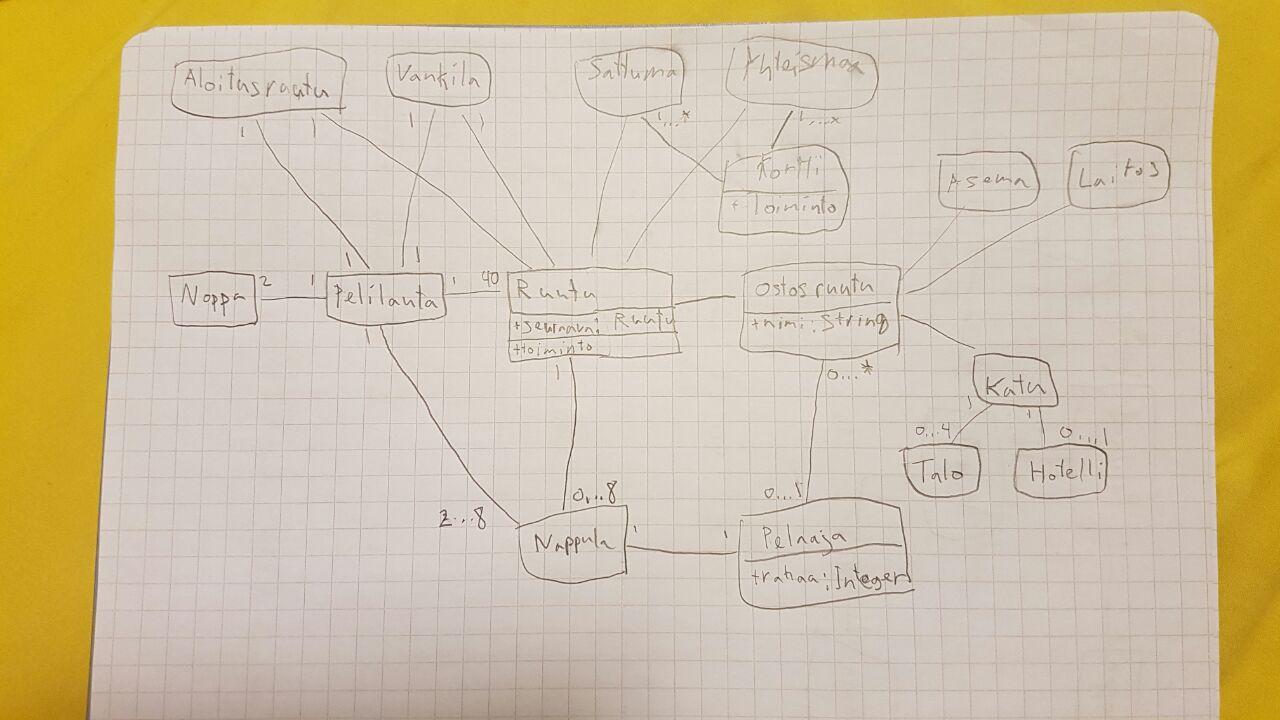 Aloitusruutu
Vankila
Sattuma
1
1
1
1
1...*
1...*
Kortti
+ Toiminto
Asema
Laitos
Noppa
2
1
1
1
Pelilauta
1
40
1
Ruutu
+seuraava: Ruutu
+toiminto
1
Ostosruutu
+nimi: String
0...*
Katu
1
1
0...4
0...1
Talo
Hotelli
2...8
0...8
0...1
Nappula
1
1
Pelaaja
+rahaa: Integer